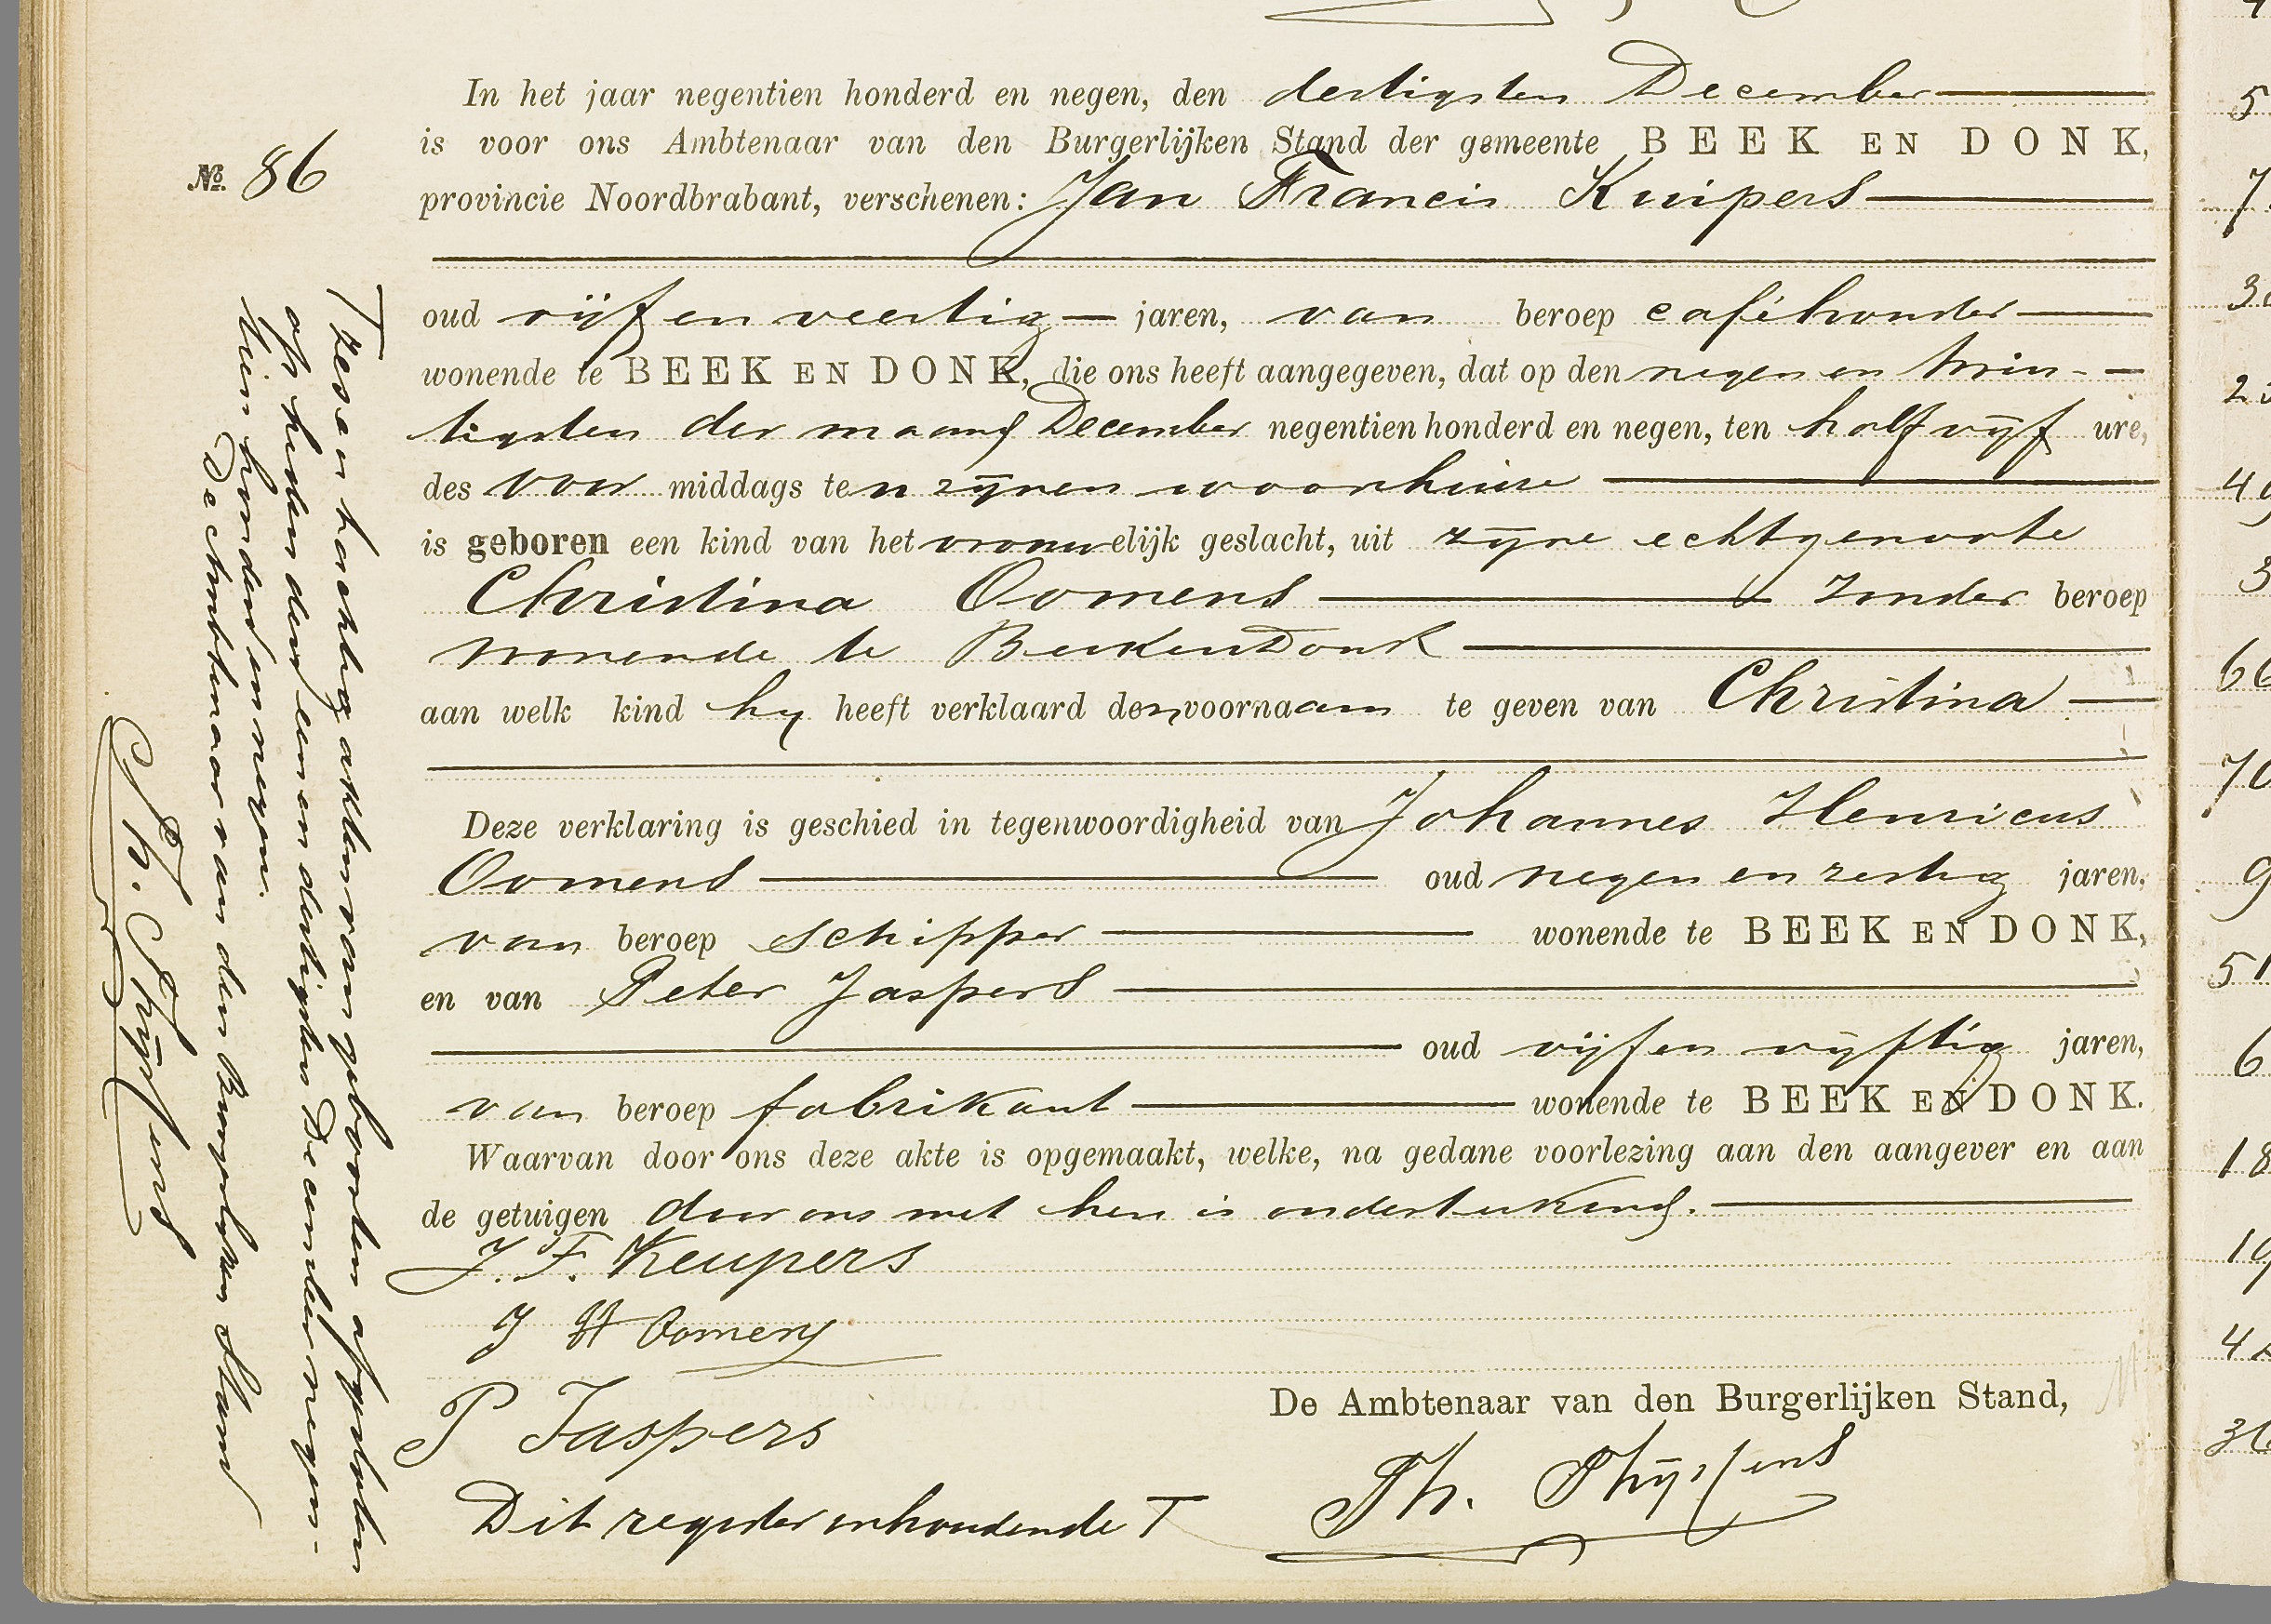 In het jaar negentien honderd en negen, den dertigsten December
is voor ons Ambtenaar van den Burgerlijken Stand der gemeente BEEK EN DONK,
No. 86
provincie Noordbrabant, verschenen: Jan Francis Kuipers
oud vijf en veertig jaren, van beroep caféhouder
wonende te BEEK EN DONK, die ons heeft aangegeven, dat op den negen en twin-
tigsten der maand December negentien honderd en negen, ten half vijf ure,
des voor middags ten zijnen woonhuise
is geboren een kind van het vrouwelijk geslacht, uit zijne echtgenoote
Christina Oomens zonder beroep
wonende te Beek en Donk
aan welk kind hij heeft verklaard den voornaam te geven van Christina
Deze verklaring is geschied in tegenwoordigheid van Johannes Henricus
Oomens oud negen en zestig jaren,
van beroep schipper wonende te BEEK EN DONK,
en van Peter Jaspers
oud vijf en vijftig jaren,
van beroep fabrikant wonende te BEEK EN DONK.
Waarvan door ons deze akte is opgemaakt, welke, na gedane voorlezing aan den aangever en aan
de getuigen door ons met hen is onderteekend.
J. F. Keupers
J H Oomens
P Jaspers
De Ambtenaar van den Burgerlijken Stand,
Th. Thijssens
Dit register inhoudende T
T zes en tachtig akten van geboorten afgesloten
op heden den een en dertigsten December negen-
tien honderd en negen.
De Ambtenaar van den Burgerlijken Stand
Th. Thijssens
5
7
2
3
66
9
51
6
18